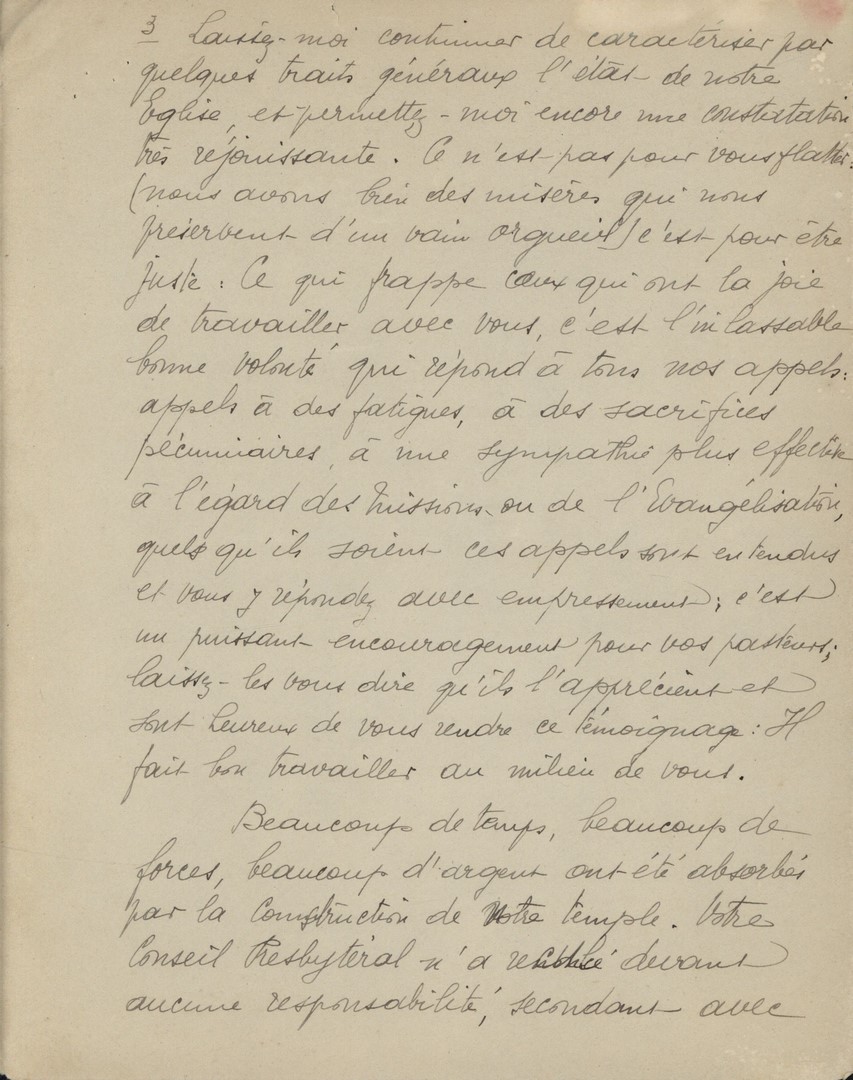 3 Laissez-moi continuer de caractériser par
quelques traits généraux l'état de notre
Eglise, et permettez-moi encore une constatation
très réjouissante. Ce n'est pas pour vous flatter:
(nous avons bien des misères qui nous
préservent d'un vain orgueil) c'est pour être
juste: Ce qui frappe ceux qui ont la joie
de travailler avec vous, c'est l'inlassable
bonne volonté qui répond à tous nos appels:
appels à des fatigues, à des sacrifices
pécuniaires, à une sympathie plus effective
à l'égard des Missions ou de l'Evangélisation,
quels qu'ils soient ces appels sont entendus
et vous y répondez avec empressement; c'est
un puissant encouragement pour vos pasteurs;
laissez-les vous dire qu'ils l'apprécient et
sont heureux de vous rendre ce témoignage: Il
fait bon travailler au milieu de vous.
Beaucoup de temps, beaucoup de
forces, beaucoup d'argent ont été absorbés
par la construction de Votre temple. Votre
Conseil Presbytéral n'a reculé devant
aucune responsabilité, secondant avec